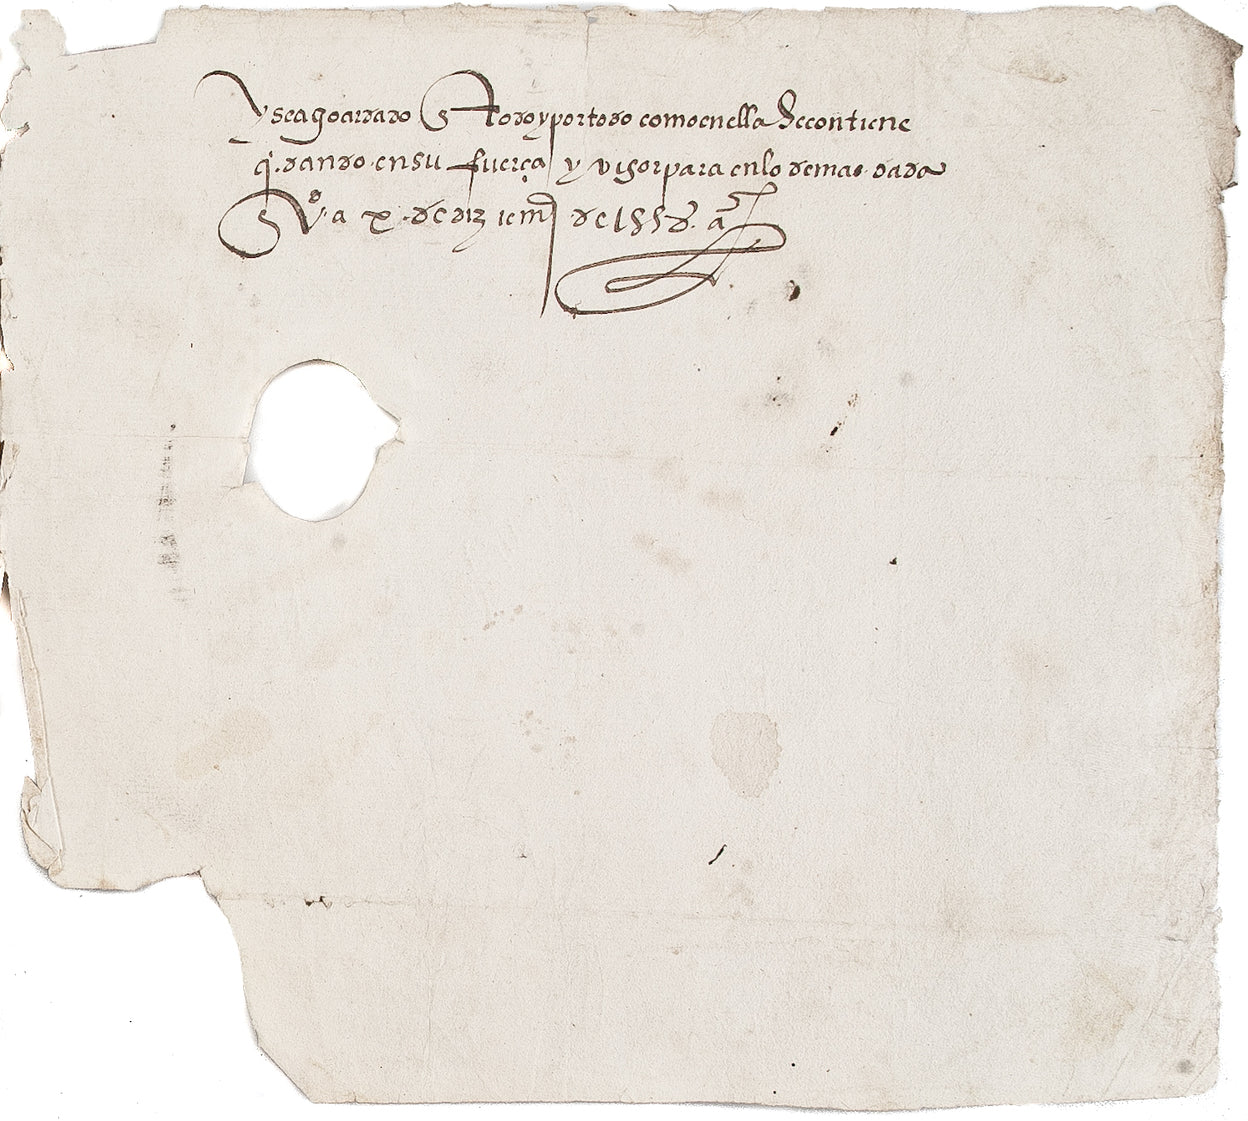 y sea goardado en todo y por todo como en ella se contiene
q̃dando en su fuerça y vigor para en lo demas dada
en Vd a x de diziem̃ de 1558 aˢ